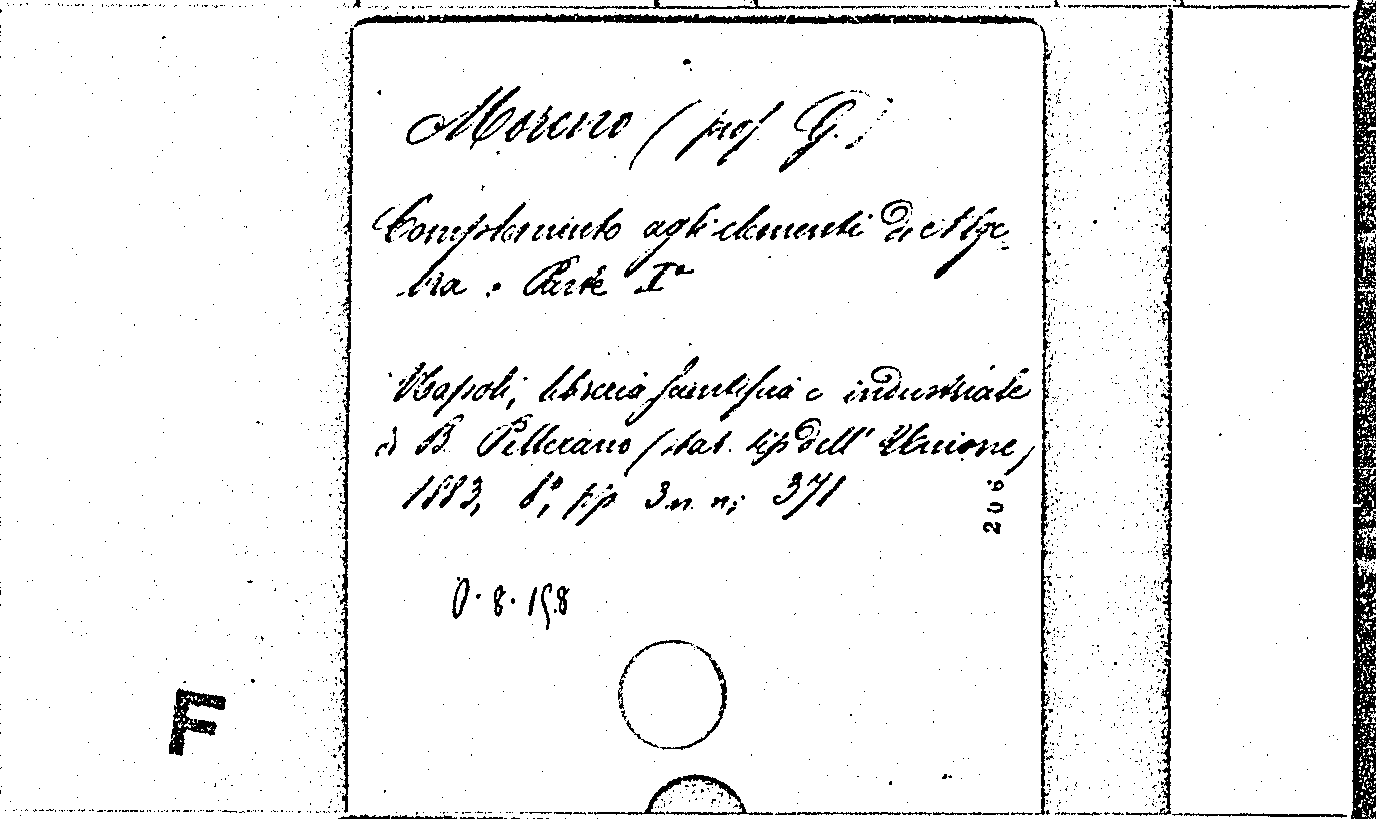 Moreno (prof G.)
Complemento agli elementi di Alge-
bra: Parte Iª
Napoli, libreria scientifica e industriale
di B. Pellerano (stab. tip dell' Unione,
1883, 8°, pp 3 n. n; 371
206
0.8.158
F